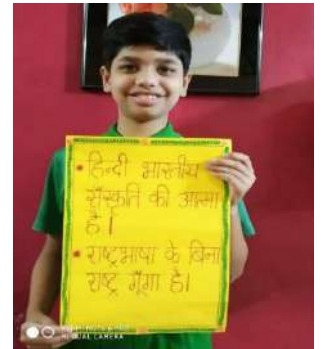 • हिन्दी भारतीय
संस्कृति की आत्मा
है।
• राष्ट्रभाषा के बिना
राष्ट्र गूँगा है।
DUAL CAMERA